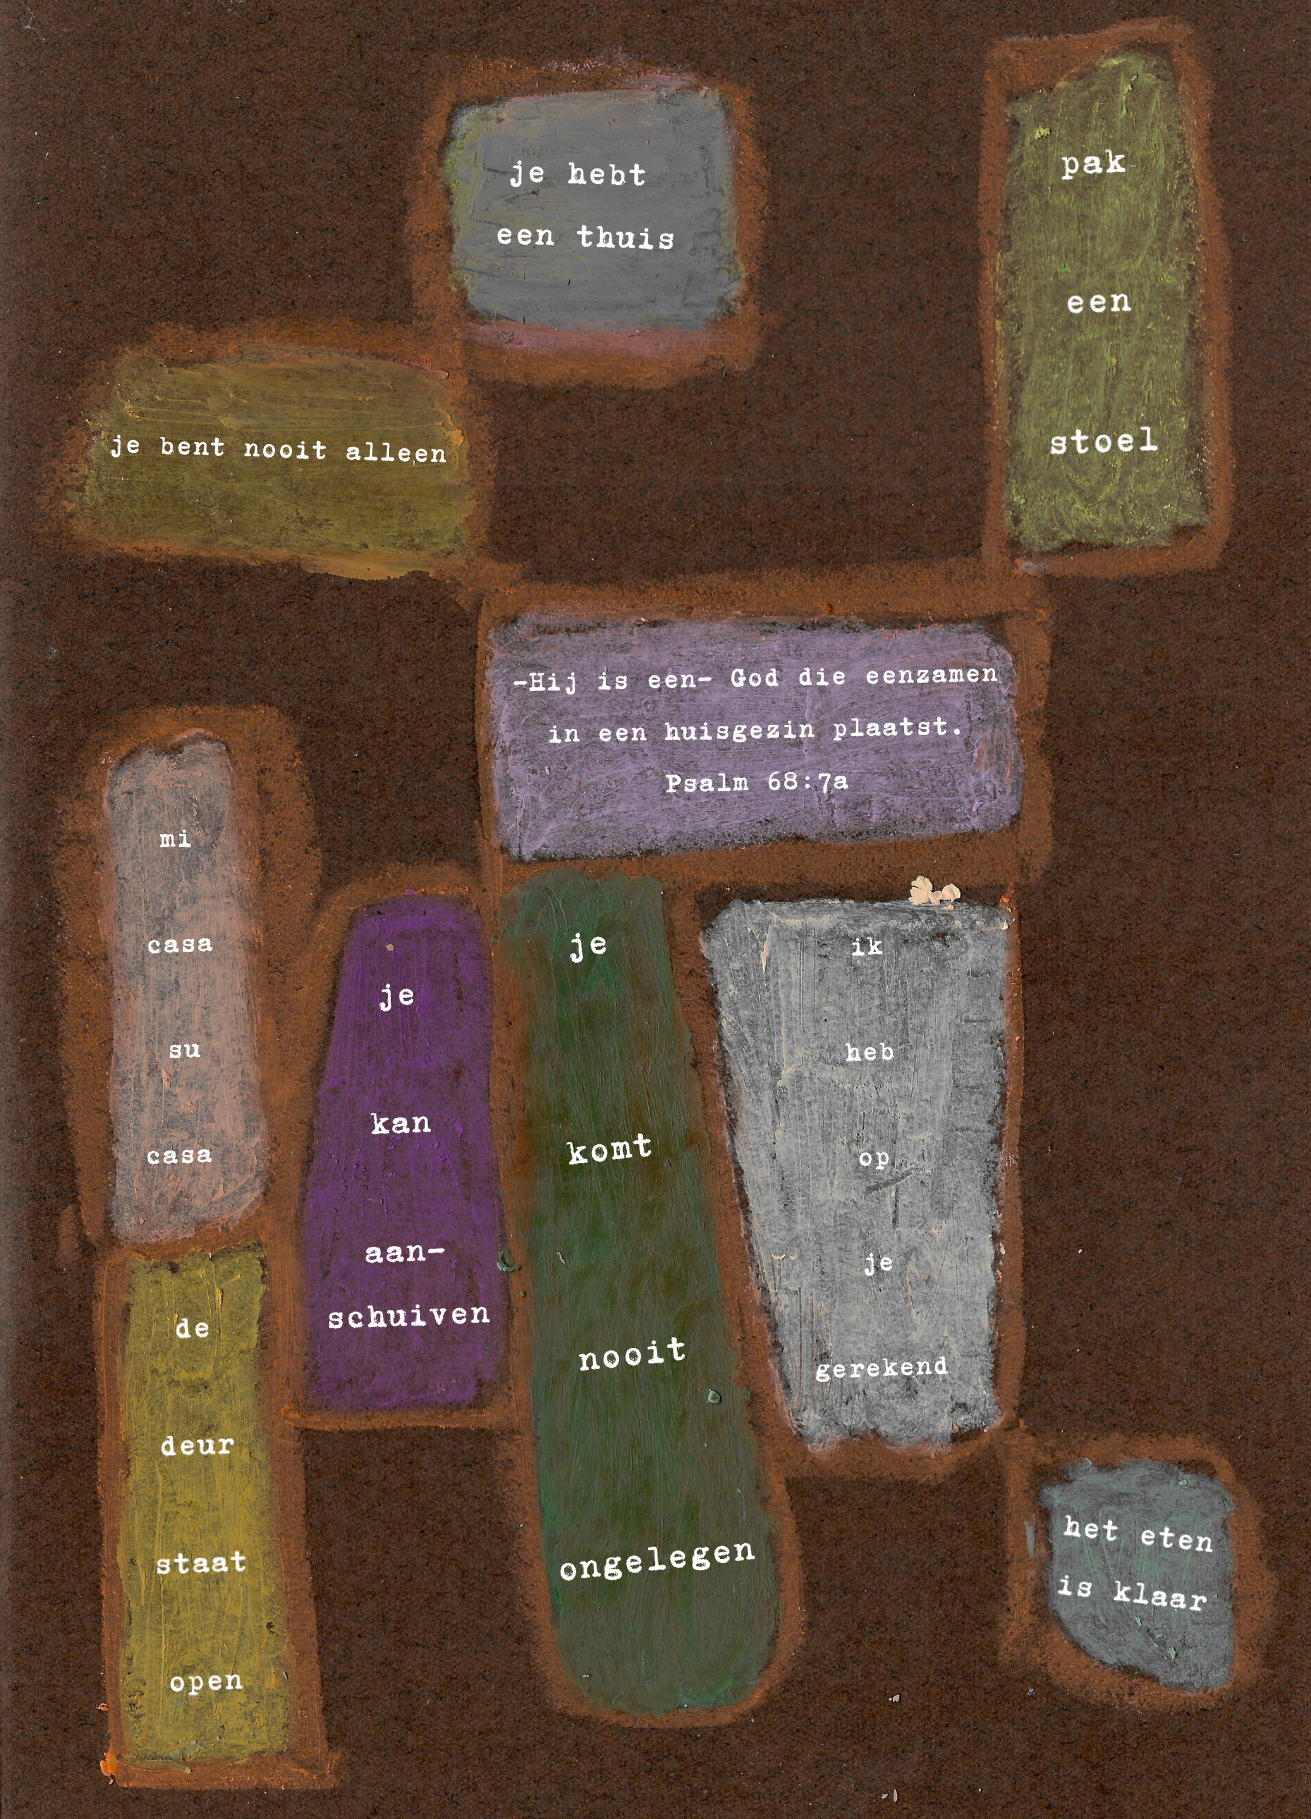 je hebt
een thuis
pak
een
stoel
je bent nooit alleen
-Hij is een- God die eenzamen
in een huisgezin plaatst.
Psalm 68:7a
mi
casa
su
casa
je
kan
aan-
schuiven
je
komt
nooit
ongelegen
ik
heb
op
je
gerekend
de
deur
staat
open
het eten
is klaar